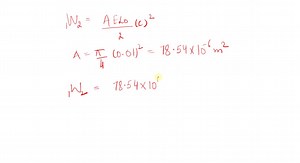 ₁W₂ = AEL₀/2 (ε)²
A = π/4 (0.01)² = 78.54×10⁻⁶ m²
₁W₂ = 78.54×10